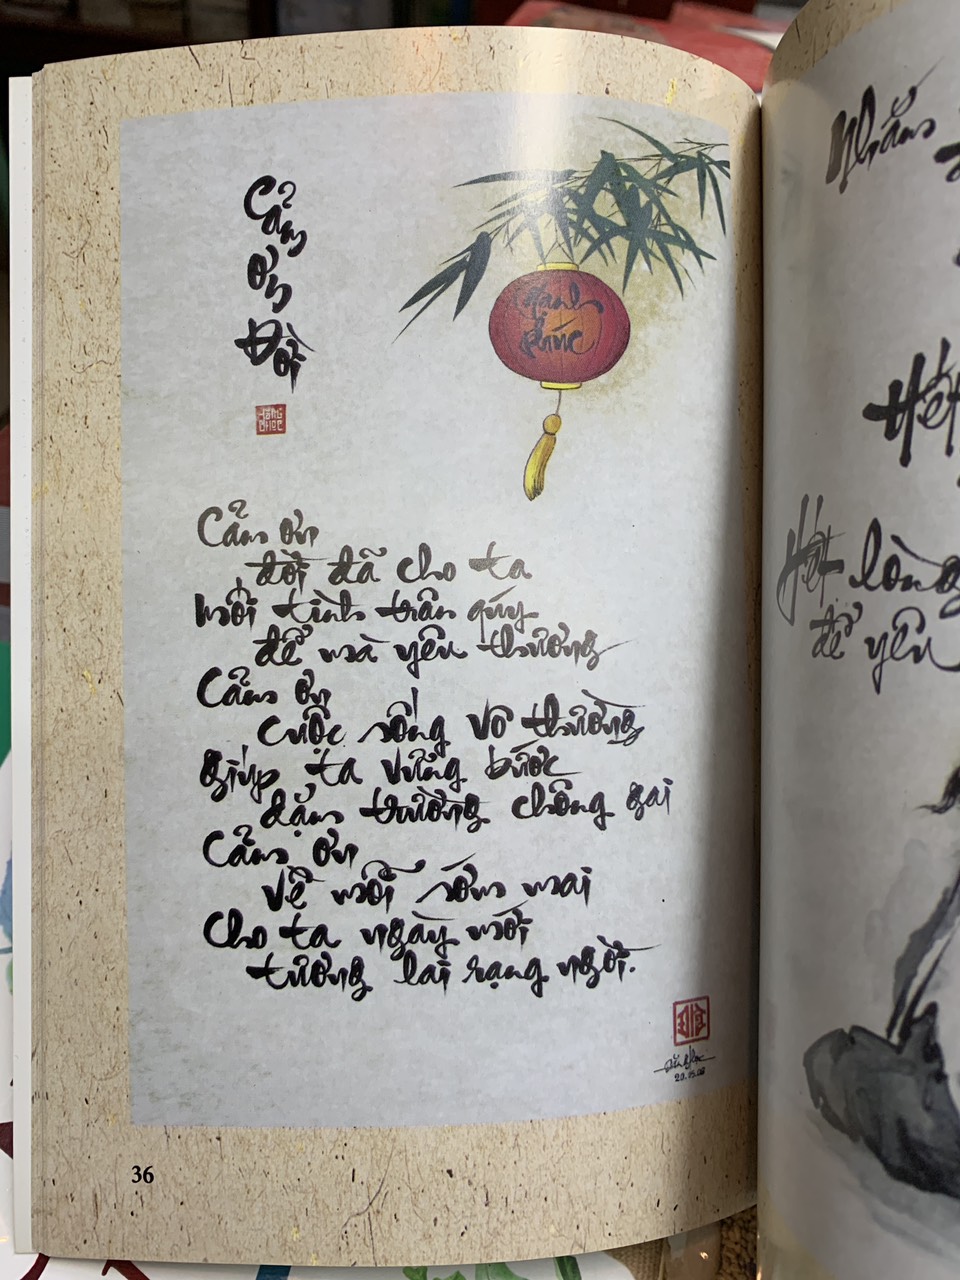 Cảm
ơn
Đời
Hạnh
phúc
Cảm ơn
đời đã cho ta
mối tình trân quý
để mà yêu thương
Cảm ơn
cuộc sống vô thường
giúp ta vững bước
dặm trường chông gai
Cảm ơn
về mỗi sớm mai
Cho ta ngày mới
tương lai rạng ngời.
36
Nhắm
Hết
Hết lòng
để yêu